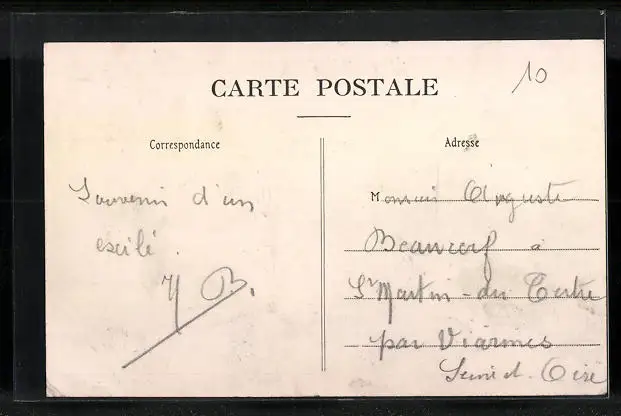 10
CARTE POSTALE
Correspondance
Adresse
Souvenir d'un
exilé.
B.
Monsieur Auguste
à
St Martin-du Tertre
par Viarmes
Seine et Oise